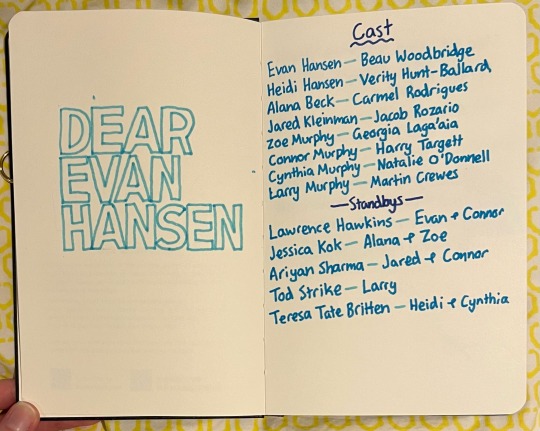 DEAR
EVAN
HANSEN
Cast
Evan Hansen — Beau Woodbridge
Heidi Hansen — Verity Hunt-Ballard
Alana Beck — Carmel Rodrigues
Jared Kleinman — Jacob Rozario
Zoe Murphy — Georgia Laga'aia
Connor Murphy — Harry Targett
Cynthia Murphy — Natalie O'Donnell
Larry Murphy — Martin Crewes
— Standbys —
Lawrence Hawkins — Evan + Connor
Jessica Kok — Alana + Zoe
Ariyan Sharma — Jared + Connor
Tod Strike — Larry
Teresa Tate Britten — Heidi + Cynthia